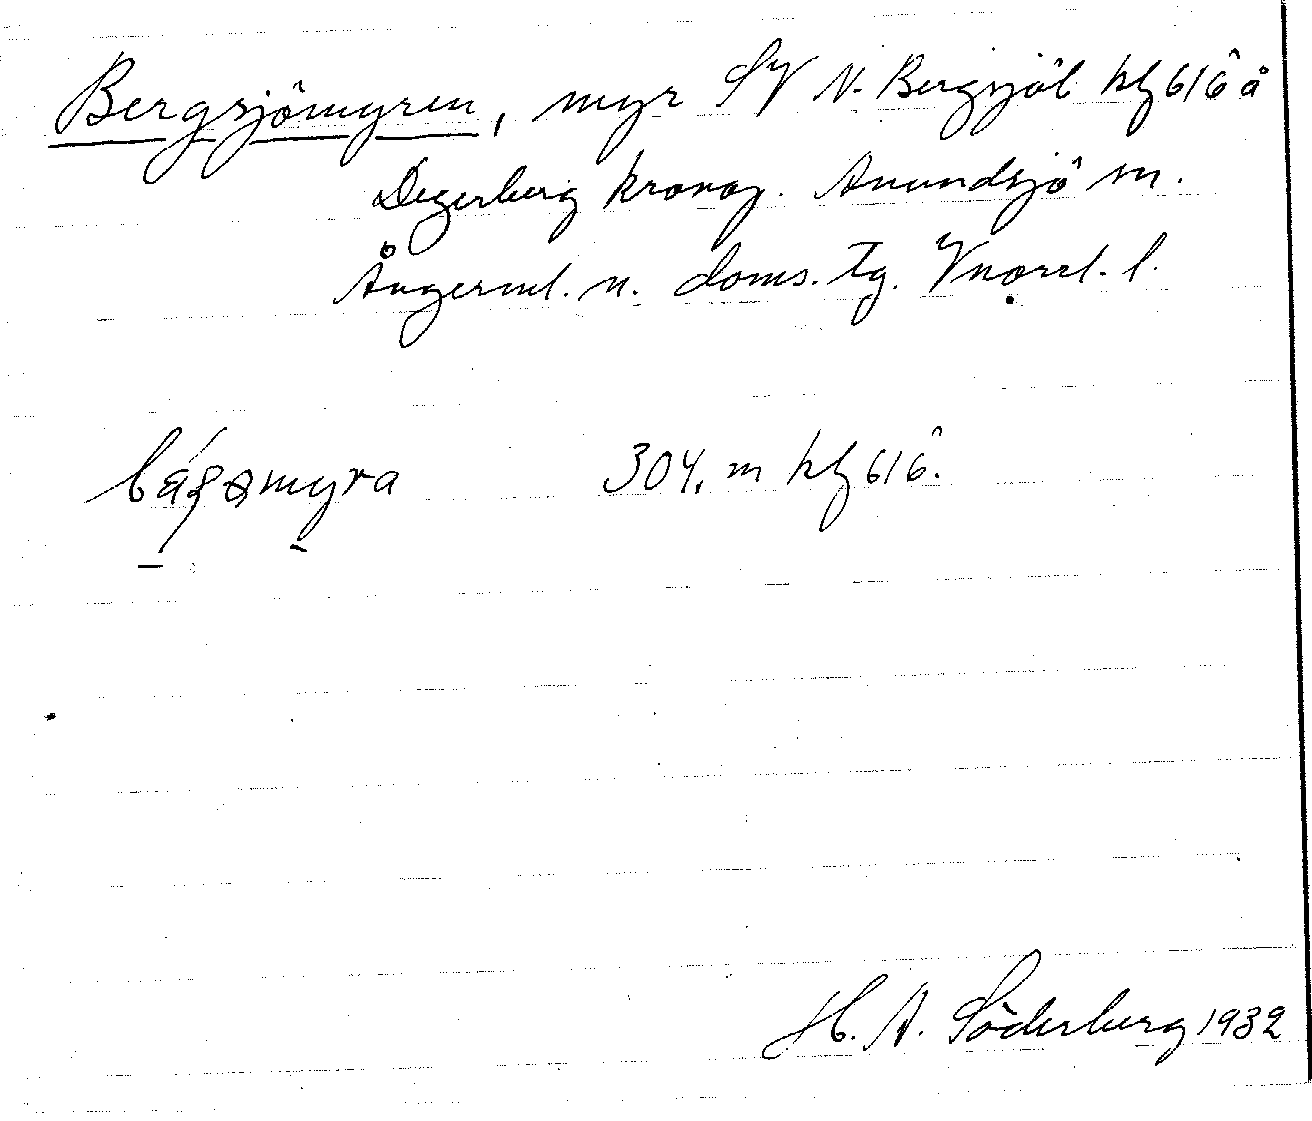 Bergsjömyren, myr SV N. Bergsjöb kbl 616 å
Degerberg kronop. Anundsjö sn.
Ångerml. n. doms. tg. Vnorrl. l.
304. m kbl 616.
H. A. Söderberg 1932